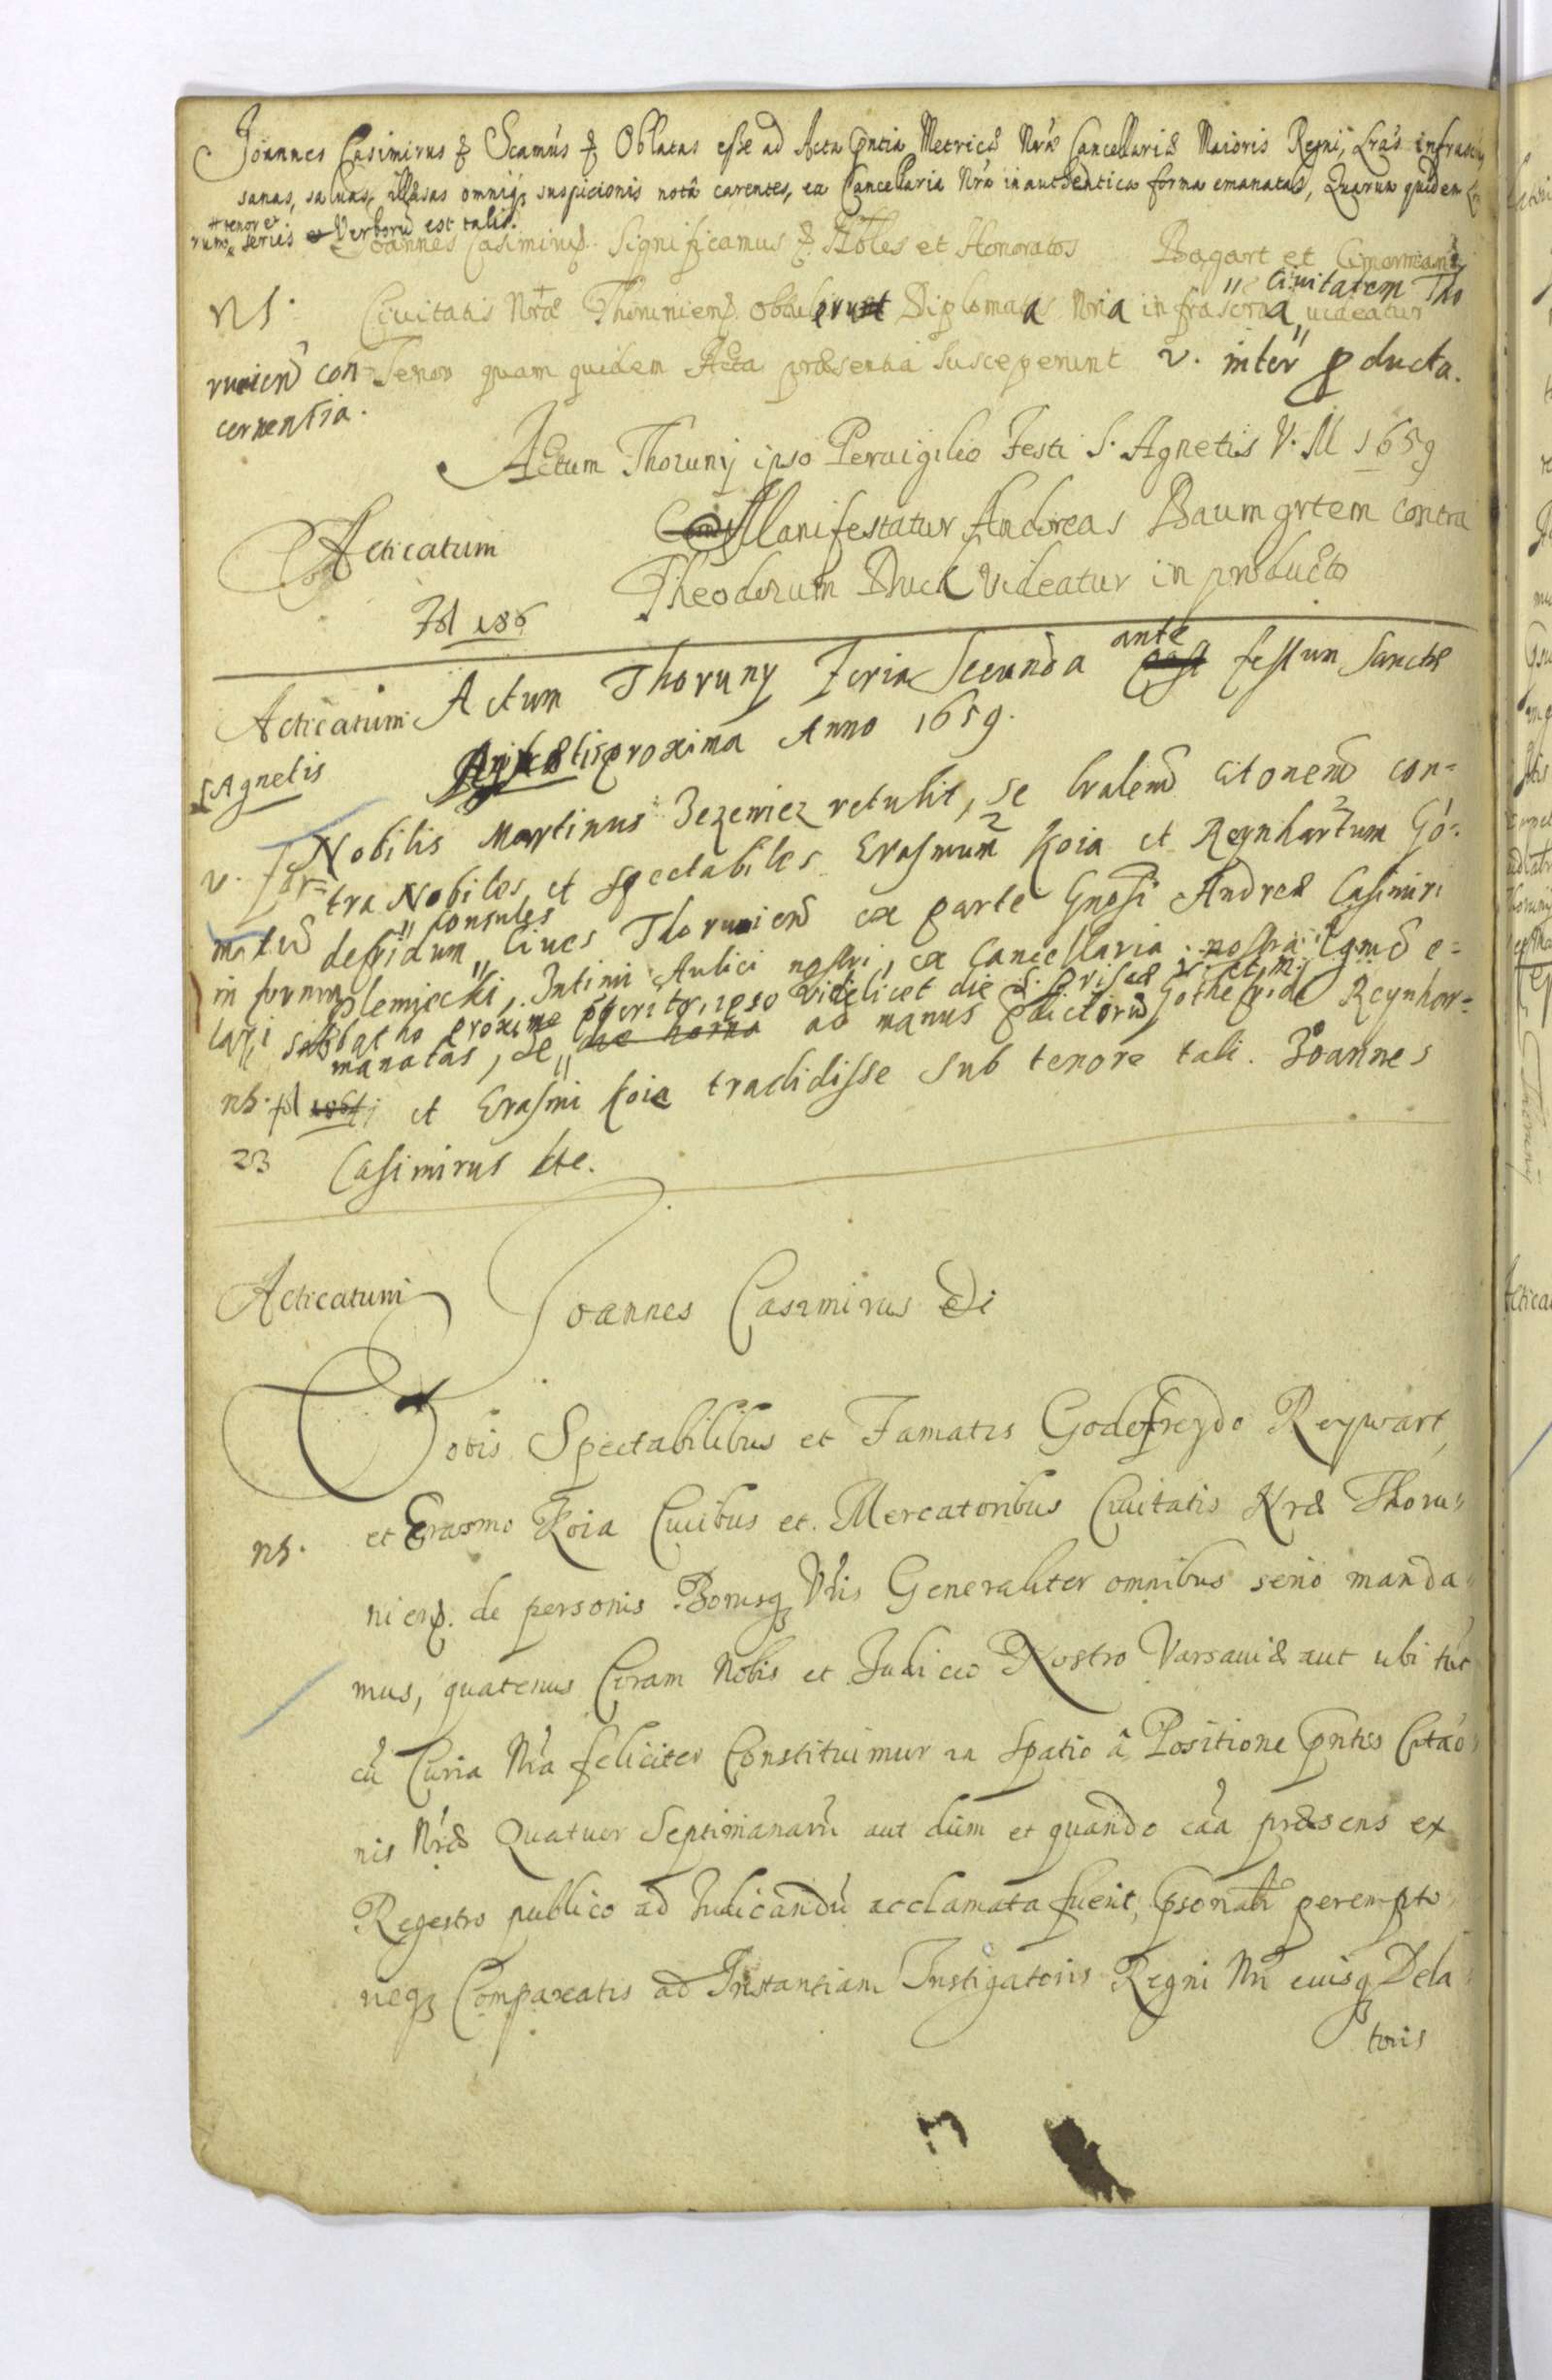 Joannes Casimirus & Scamus & Oblatas esse ad Acta pntia Metrices Nrae Cancellariae Maioris Regni, Lras infrascr
sanas, saluas, illaesas omniq suspicionis nota carentes, ex Cancellaria Nra in authentica forma emanatas, Quarum quidem
tenor et
rum series et Verboru est talis.
Joannes Casimirus Significamus & Nobles et Honoratos Bagart et
NS. Ciuitatis Nrae Thoruniens obtulerunt Diplomata Nria infrascrta uideatur
" Ciuitatem Tho
runien con=
cernentia.
Tenor quam quidem Acta praesentia susceperunt v. inter pducta.
Actum Thoruny ipso Peruigilio Festi S. Agnetis V. M 1659
Acticatum
Manifestatur Andreas Baumgrtem contra
Theodorum Druck Videatur in producto
Fol 186
Acticatum Actum Thoruny Feria Secunda ante post festum Sanctae
S Agnetis proxima Anno 1659.
Nobilis Martinus retulit, se lralem citonem con=
tra Nobiles et spectabiles Erasmum Koia et Reynhartum Go=
" Consules
defridum " Ciues Thorunien ex parte Gnosi Andreae Casimiri
in forma
plemiecki, Intimi Aulici nostri, ex Cancellaria nostra e=
sabbatho proxime pterito, ipso videlicet die S. Priscae V. et M.
manatas, se " die horna ad manus pdictoru Gothefride Reynhar=
ns. fol 186 ti et Erasmi Koia tradidisse sub tenore tali. Joannes
23 Casimirus etc.
Acticatum Joannes Casimirus Di
Vobis Spectabilibus et Famatis Godefreydo Reywart
ns. et Erasmo Koia Ciuibus et Mercatoribus Ciuitatis Nrae Thoru"
niens. de personis Bonisq Vris Generaliter omnibus serio manda"
mus, quatenus Coram Nobis et Judicio Nostro Varsauiae aut ubi tuc
cu Curia Nra feliciter Constituimur in Spatio a Positione pntis Citao"
nis Nrae Quatuor Septimanaru aut dum et quando caa praesens ex
Regestro publico ad Judicandu acclamata fuerit, psonalr perempto"
rieq Compareatis ad Instantiam Instigatoris Regni Nri euisq Dela"
toris